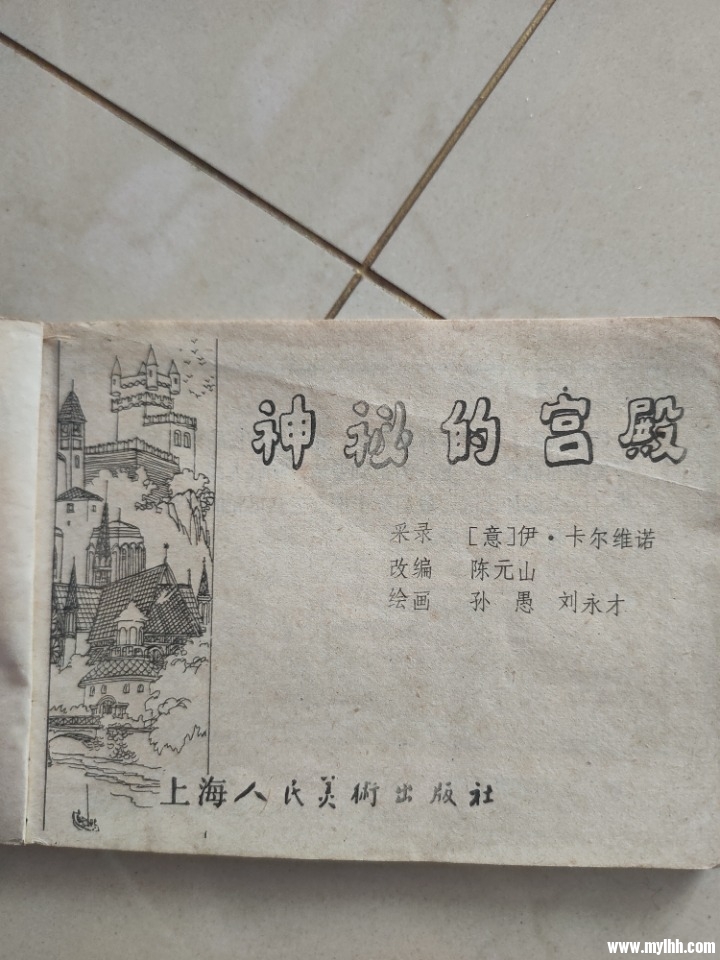 神秘的宫殿
采录 [意]伊·卡尔维诺
改编 陈元山
绘画 孙 愚 刘永才
上海人民美術出版社
www.mylhh.com